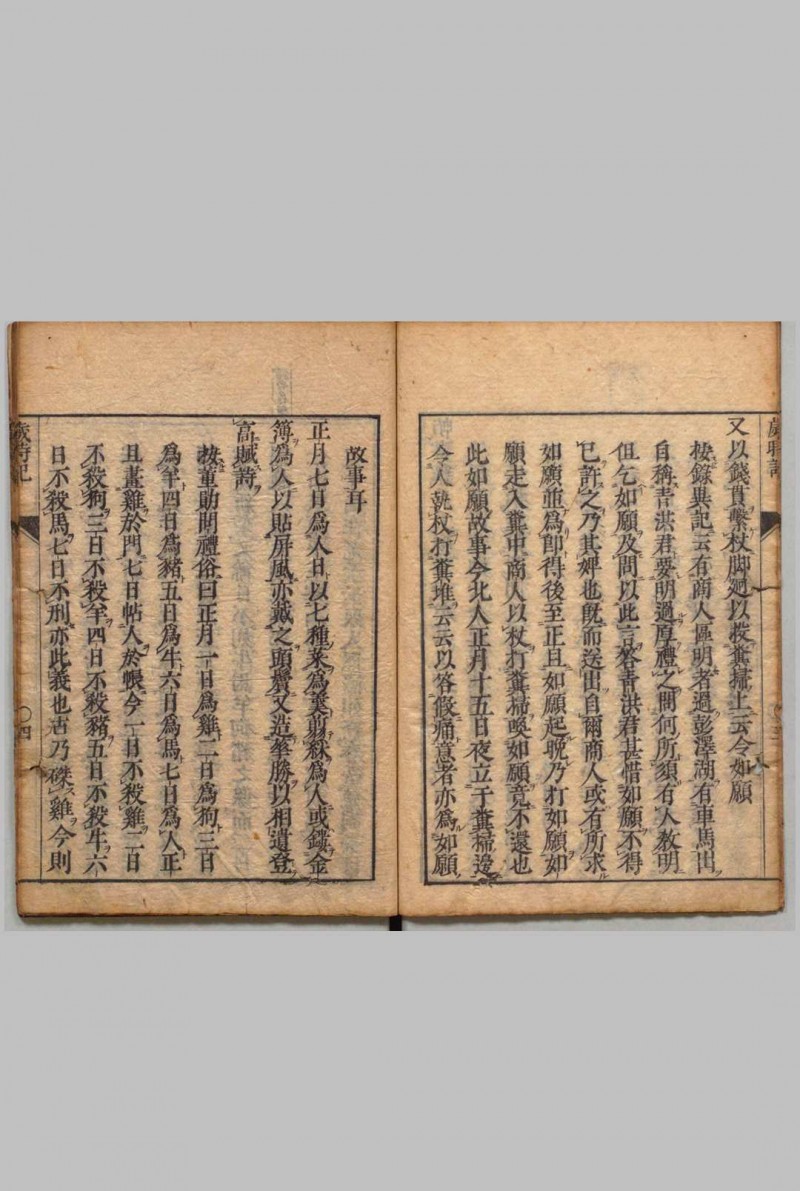 又以錢貫繫杖脚廻以投糞掃上云令如願
按錄異記云有商人區明者過彭澤湖有車馬出
自稱青洪君要明過厚禮之問何所須有人教明
但乞如願及問以此言答青洪君甚惜如願不得
已許之乃其婢也旣而送出自爾商人或有所求
如願並爲卽得後至正旦如願起晩乃打如願如
願走入糞中商人以杖打糞掃喚如願竟不還也
此如願故事今北人正月十五日夜立于糞掃邊
令人執杖打糞堆云云以答假痛意者亦爲如願
故事耳
正月七日爲人日以七種菜爲羹剪綵爲人或鏤金
簿爲人以貼屏風亦戴之頭鬢又造華勝以相遺登
高賦詩
按董勛問禮俗曰正月一日爲雞二日爲狗三日
爲羊四日爲豬五日爲牛六日爲馬七日爲人正
旦畫雞於門七日帖人於帳今一日不殺雞二日
不殺狗三日不殺羊四日不殺豬五日不殺牛六
日不殺馬七日不刑亦此義也古乃磔雞今則
歲時記
〇四